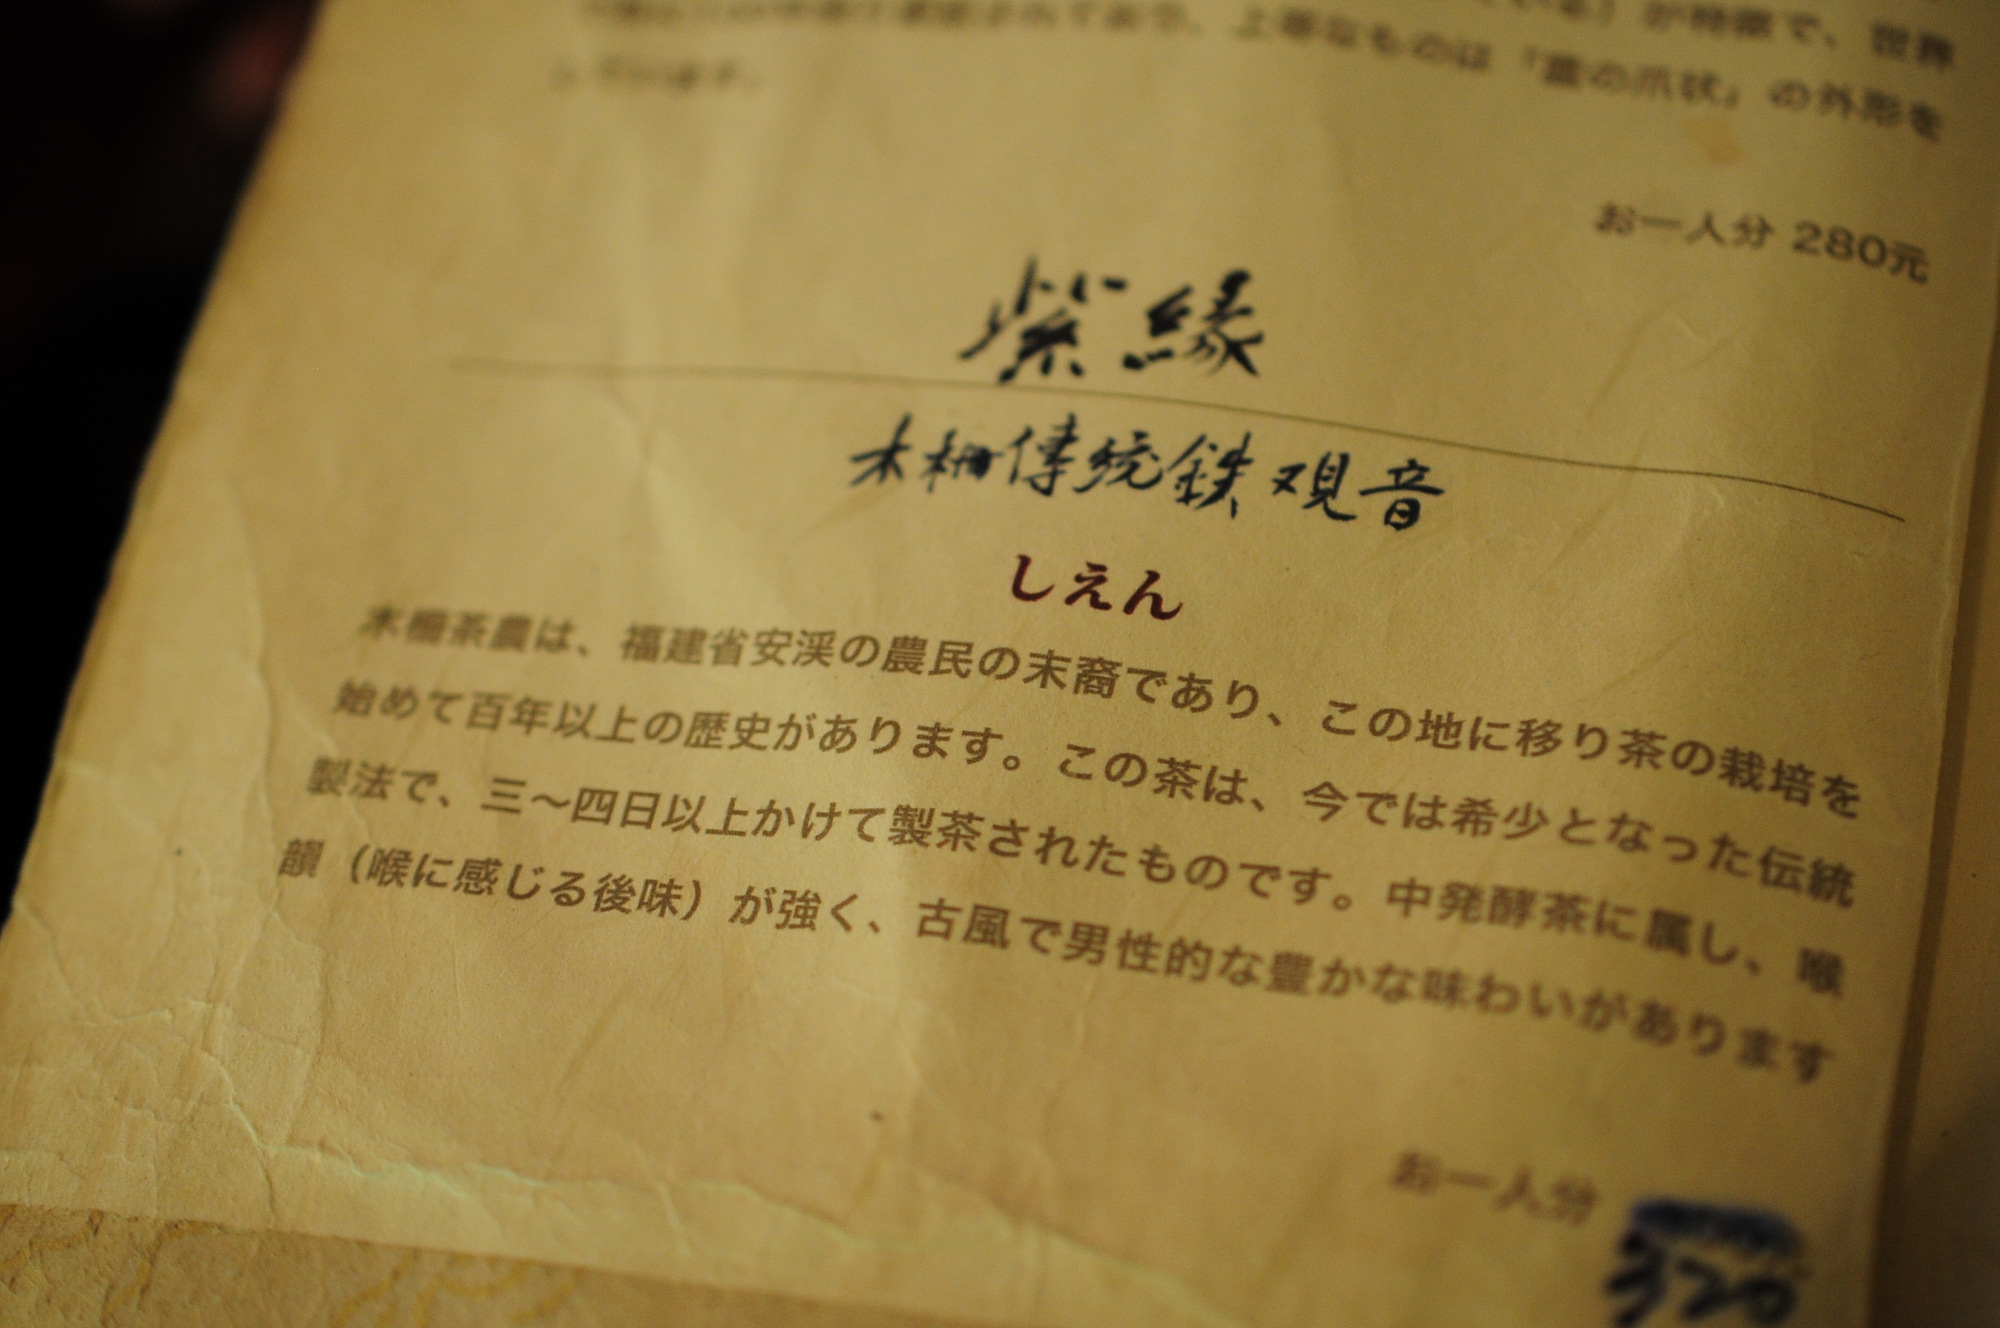 が特徴で、世界
上等なものは「霊の爪状」の外形を
しています。
お一人分 280元
紫縁
木柵傳統鉄観音
しえん
木柵茶農は、福建省安渓の農民の末裔であり、この地に移り茶の栽培を
始めて百年以上の歴史があります。この茶は、今では希少となった伝統
製法で、三〜四日以上かけて製茶されたものです。中発酵茶に属し、喉
韻（喉に感じる後味）が強く、古風で男性的な豊かな味わいがあります
お一人分
320